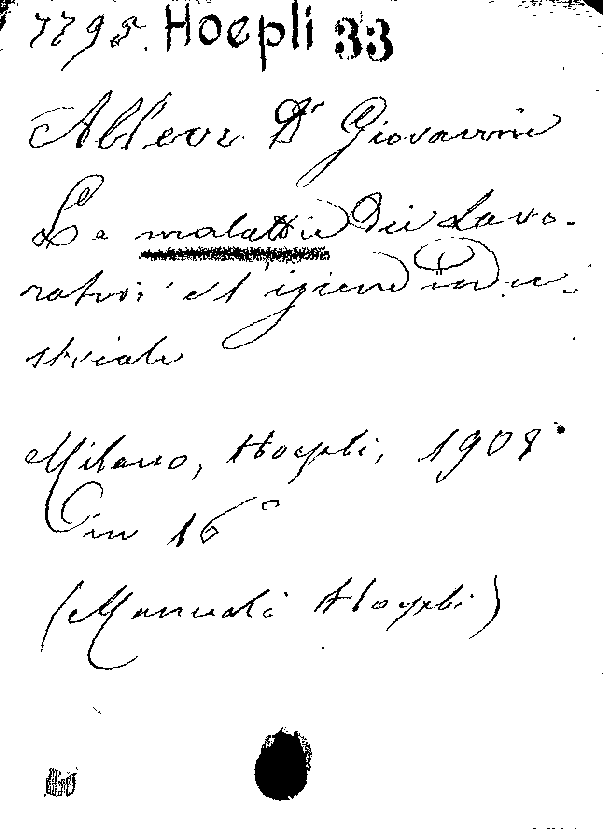 7795. Hoepli 33
Allevi Dr Giovanni
Le malattie dei Lavo-
ratori e l'igiene indu-
striale
Milano, Hoepli, 1908
in 16°
(Manuali Hoepli)